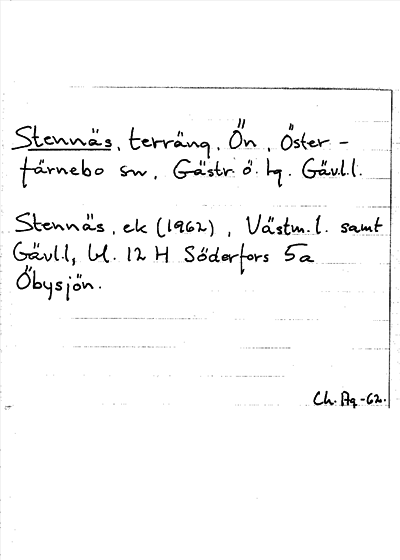 Stennäs, terräng, Ön, Öster-
färnebo sn, Gästr ö. tg. Gävl.l.
Stennäs, ek (1962), Västm.l. samt
Gävl.l, bl. 12 H Söderfors 5a
Öbysjön.
Ch. Ag -62.